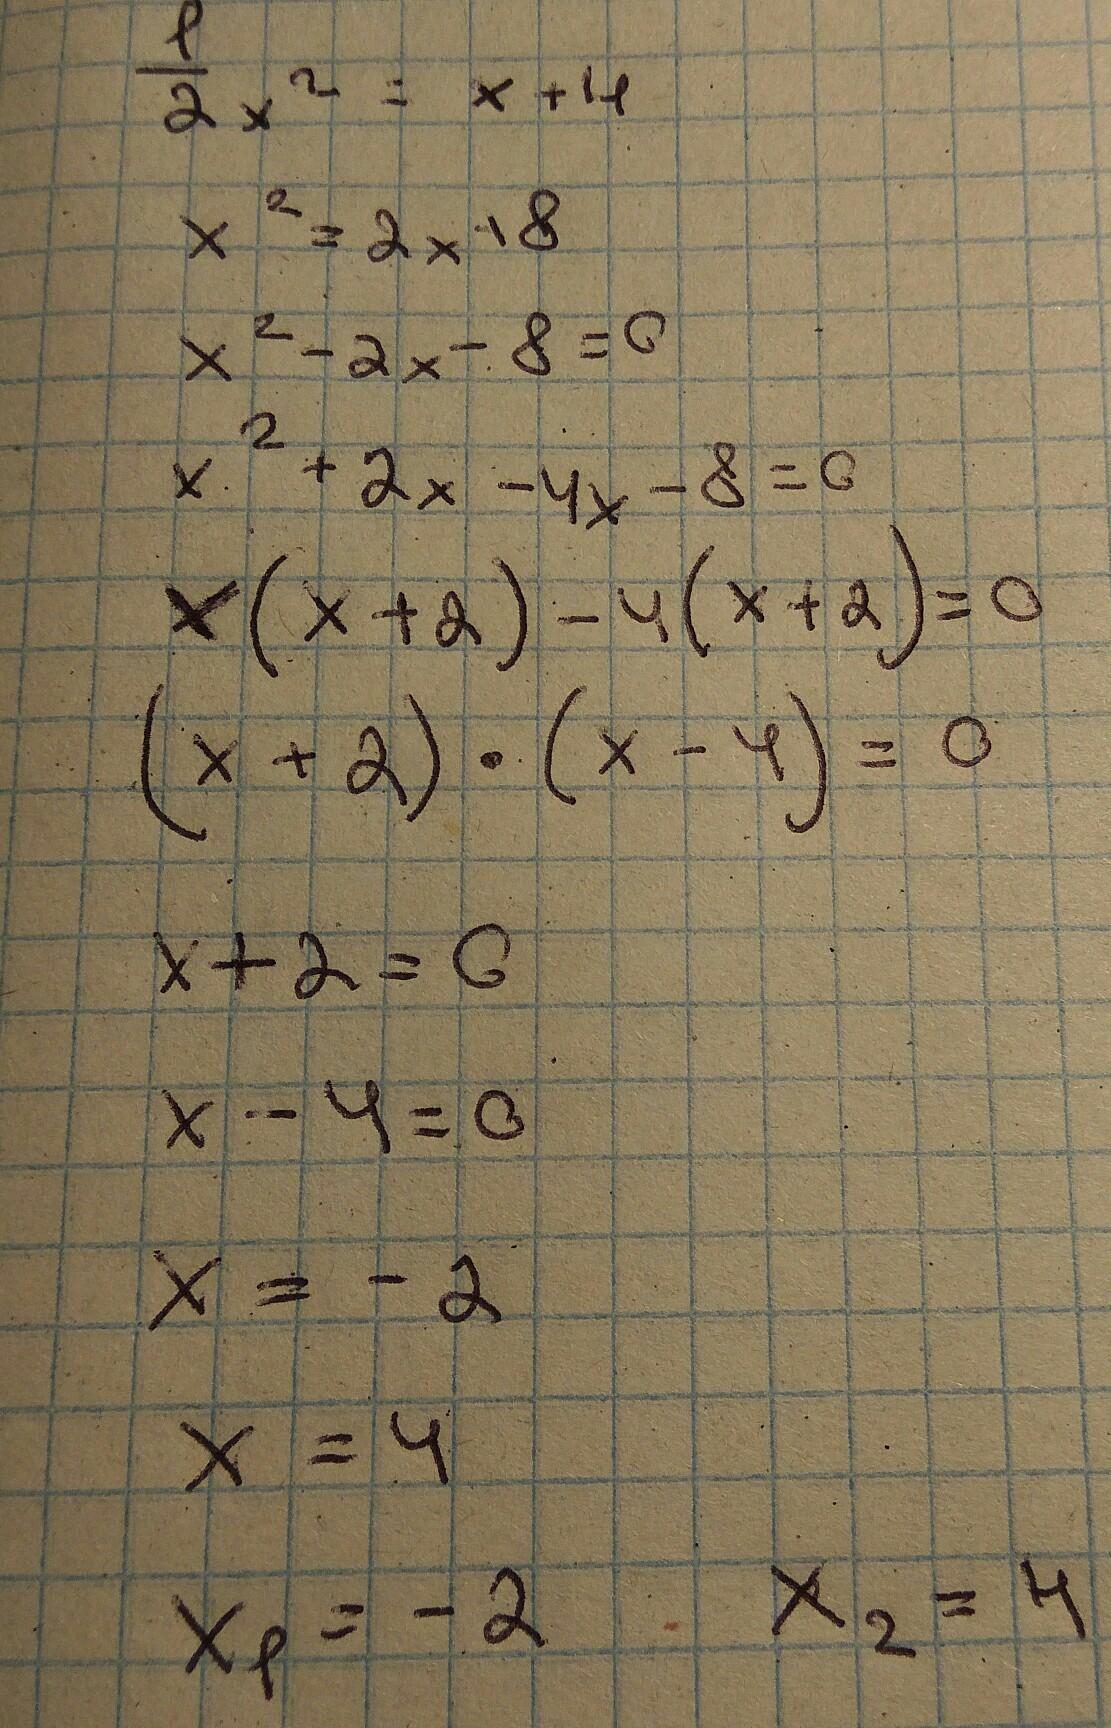 1/2 x² = x + 4
x² = 2x + 8
x² - 2x - 8 = 0
x² + 2x - 4x - 8 = 0
x(x + 2) - 4(x + 2) = 0
(x + 2) · (x - 4) = 0
x + 2 = 0
x - 4 = 0
x = -2
x = 4
x₁ = -2 x₂ = 4